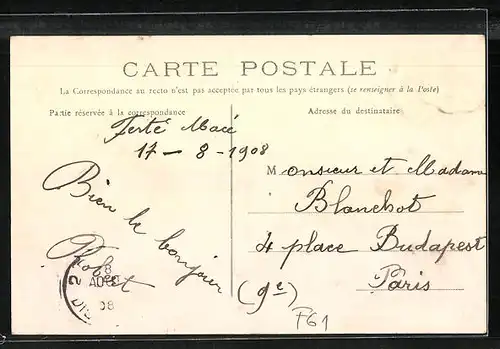 CARTE POSTALE
La Correspondance au recto n'est pas acceptée par tous les pays étrangers (se renseigner à la Poste)
Partie réservée à la correspondance
Adresse du destinataire
Ferté Macé
17 - 8 - 1908
Bien le bonjour
Robert
Monsieur et Madame
Blanchot
4 place Budapest
Paris
(9e)
F61
8
AOUT
08